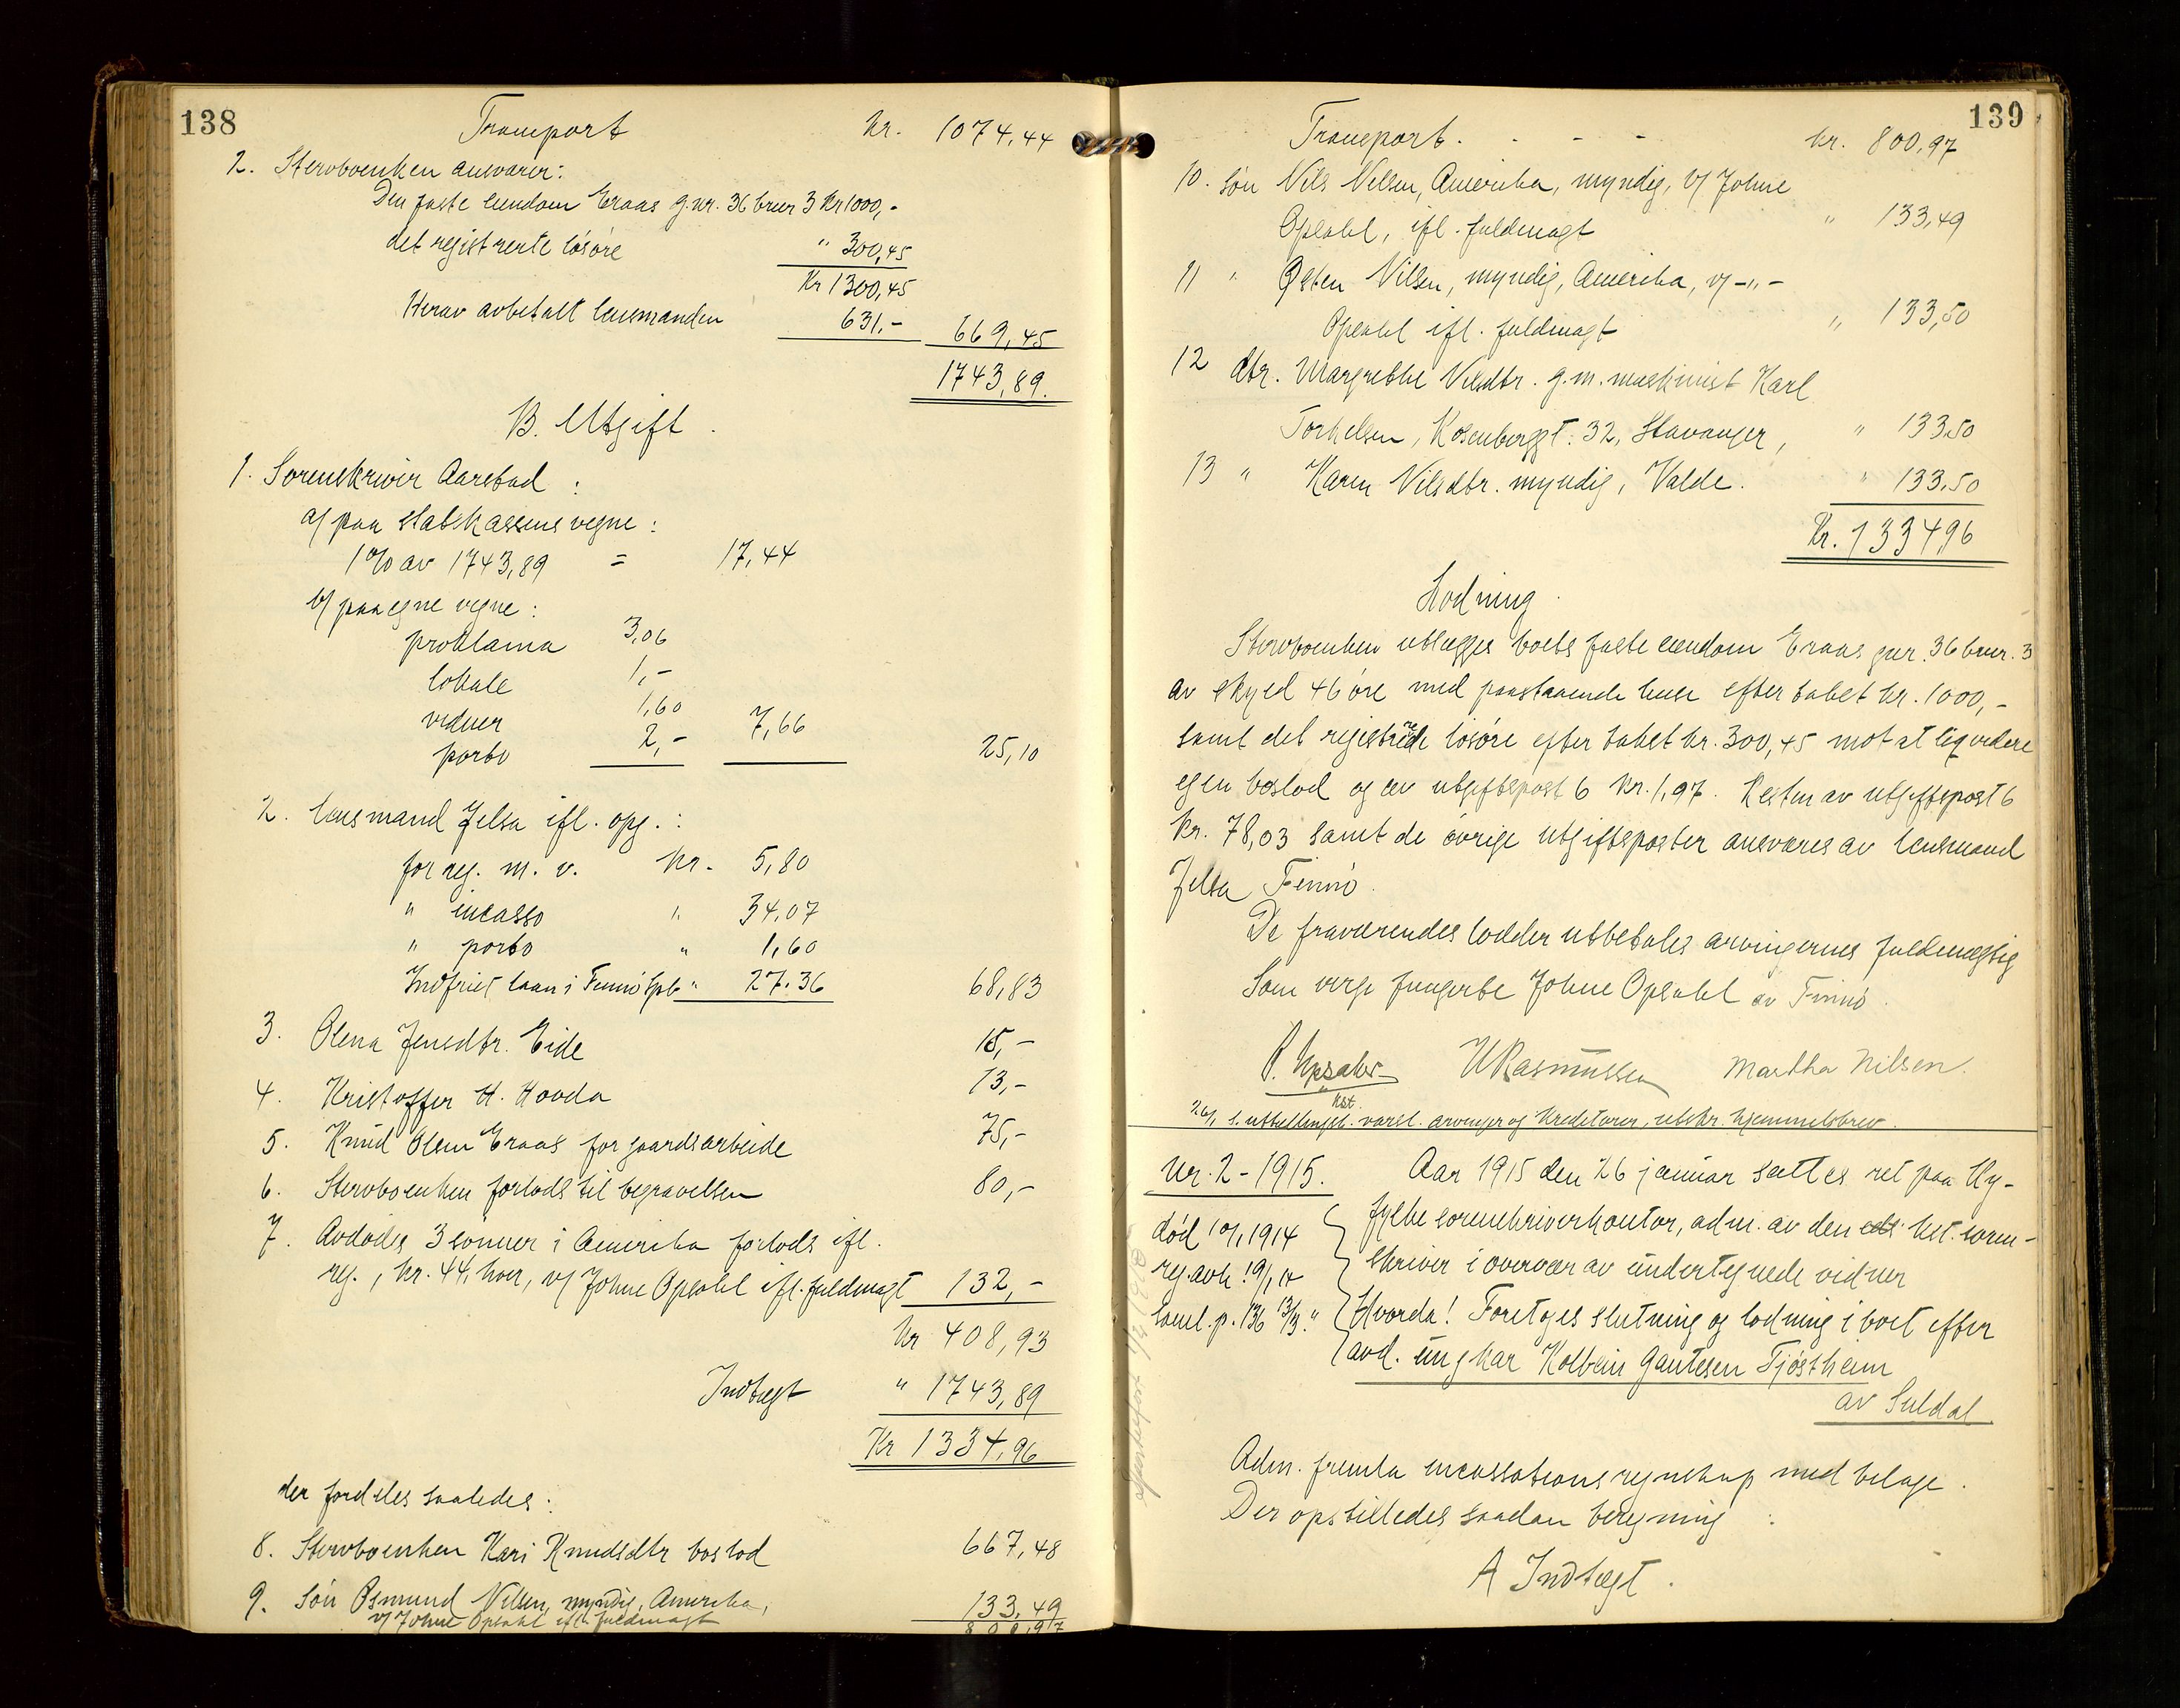 138
Transport kr. 1074,44
2. Stervboenken ansvarer:
Den faste eiendom Eraas g.nr. 36 brnr 3 kr 1000,-
det registrerte løsøre " 300,45
Kr 1300,45
Herav avbetalt lensmanden 631,- 669,45
1743,89.
B. Utgift.
1. Sorenskriver Aarstad:
a/ paa statskassens vegne:
1% av 1743,89 = 17,44
b/ paa egne vegne:
proklama 3,06
lokale 1,-
vidner 1,60
porto 2,- 7,66 25,10
2. lensmand Jelsa ifl. opg.:
for reg. m. v. kr. 5,80
" incasso " 34,07
" porto " 1,60
Indfriet laan i Finnø Spb " 27.36 68,83
3. Olena Jensdtr. Eide 15,-
4. Kristoffer H. Hovda 13,-
5. Knud Olsen Eraas for gaardsarbeide 75,-
6. Stervboenken forlods til begravelsen 80,-
7. Avdødes 3 sønner i Amerika forlods ifl.
reg., kr. 44, hver, v/ Johne Opsahl ifl. fuldmagt 132,-
kr 408,93
Indtægt " 1743,89
Kr 1334,96
der fordeles saaledes:
8. Stervboenken Kari Knudsdtr boslod 667,48
9. søn Osmund Nilsen, myndig, Amerika, 133,49
v/ Johne Opsahl ifl. fuldmagt 800,97
139
Transport. - - - kr. 800,97
10. søn Nils Nilsen, Amerika, myndig, v/ Johne
Opsahl, ifl. fuldmagt " 133,49
11 " Østen Nilsen, myndig, Amerika, v/ -"-
Opsahl ifl. fuldmagt " 133,50
12 dtr. Margrethe Nilsdtr. g.m. maskinist Karl
Torkelsen, Rosenberggt. 32, Stavanger, " 133.50
13 " Karen Nilsdtr. myndig, Valde. " 133.50
Kr. 1334,96
Lodning.
Stervboenken utlægges boets faste eiendom Eraas gnr. 36 brnr. 3
av skyld 46 øre med paastaaende huse efter takst kr. 1000,-
samt det registrerede løsøre efter takst kr. 300,45 mot at liqvidere
egen boslod og av utgiftspost 6 kr. 1,97. Resten av utgiftspost 6
kr. 78,03 samt de øvrige utgiftsposter ansvares av lensmand
Jelsa Finnø.
De fraværendes lodder utbetales arvingernes fuldmægtig
Som verge fungerte Johne Opsahl av Finnø.
P. Upsaker H Rasmussen Martha Nilsen.
kst.
26/1 s. utstillingsd. varsl. arvinger og kreditorer, utskr. hjemmelsbrev.
Nr. 2 - 1915. Aar 1915 den 26 januar sattes ret paa Ry-
fylke sorenskriverkontor, adm. av den kst. soren-
skriver i overvær av undertegnede vidner
Hvorda! Foretoges slutning og lodning i boet efter
avd. ungkar Kolbein Gautesen Tjøstheim
av Suldal
død 10/1 1914
reg. avh. 19/1 14
saml. p. 136 13/3 "
Adm. fremla incassationsregnskap med bilage.
Der opstilledes saadan beregning:
A Indtægt.